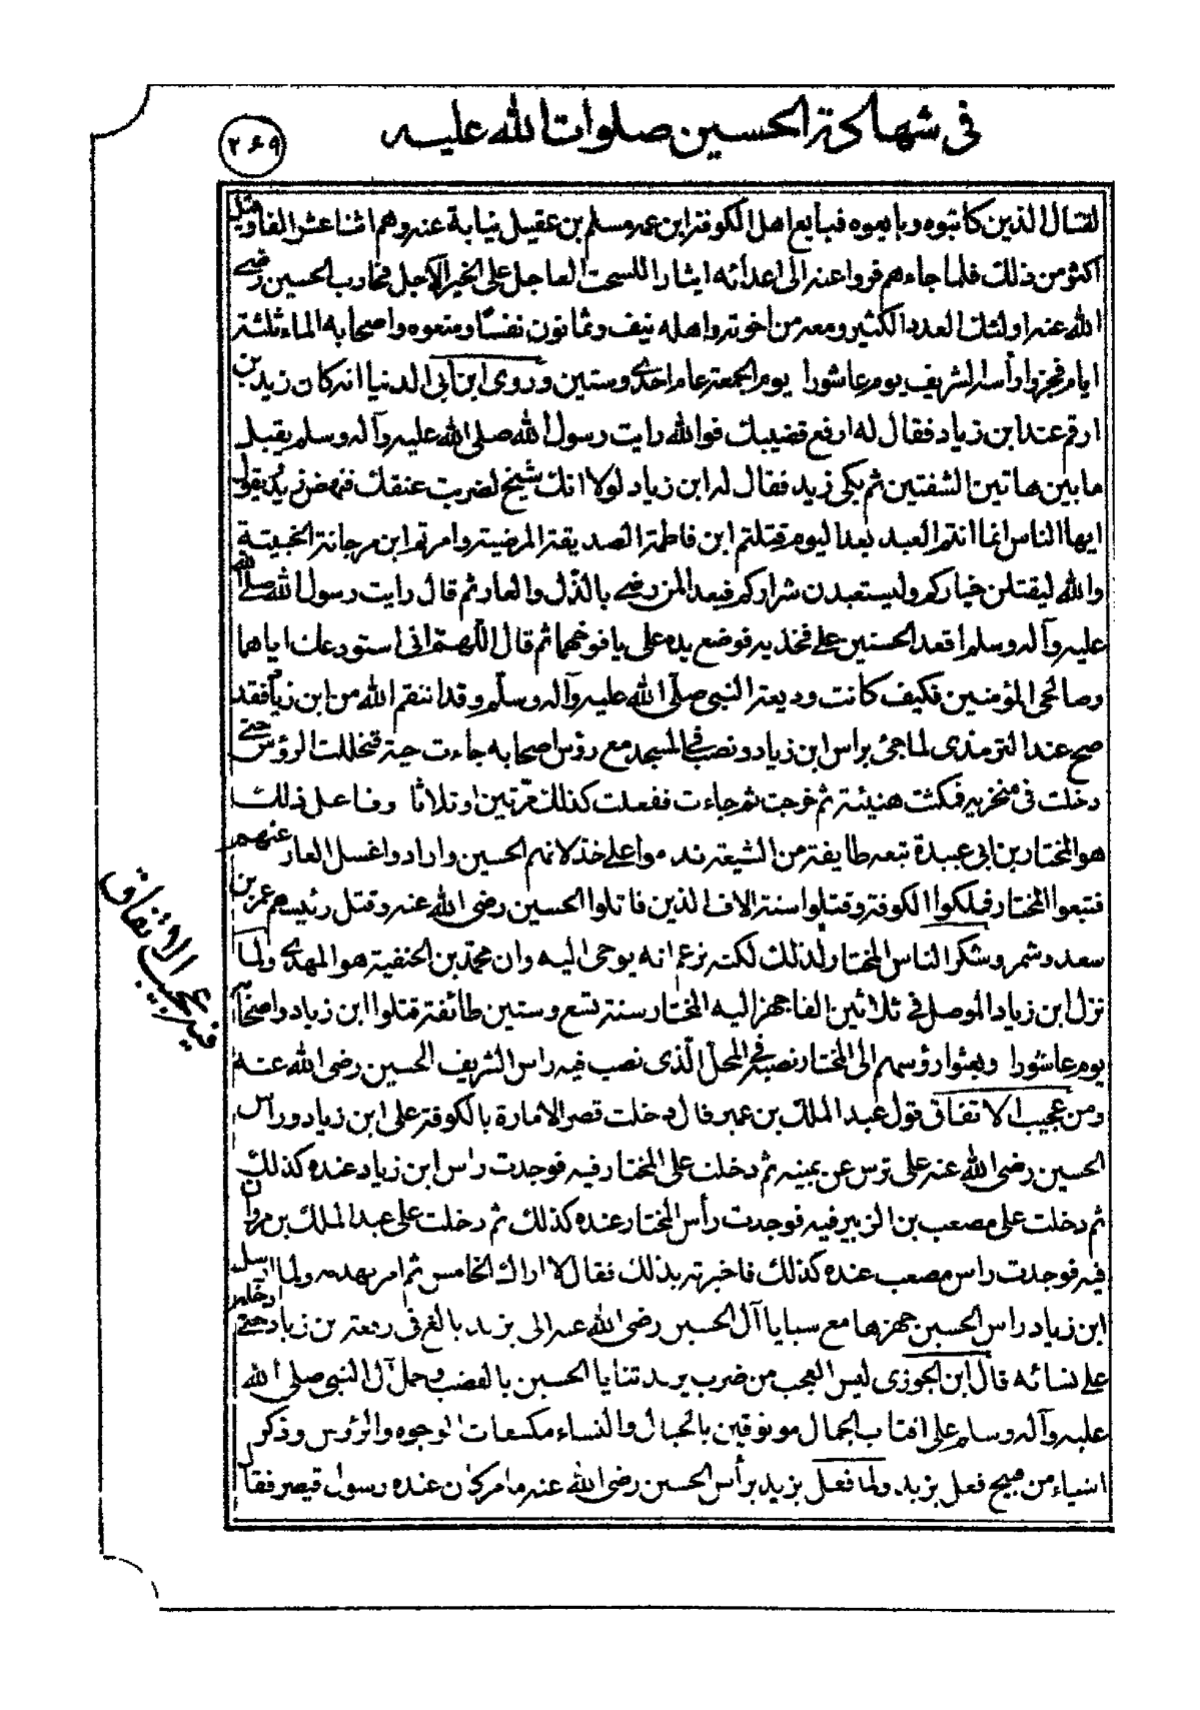 في شهادة الحسين صلوات الله عليه
٢٦٩
لقتال الذين كاتبوه وبايعوه فبايع اهل الكوفة ابن عمه مسلم بن عقيل نيابة عنه وهم اثنا عشر الفا وقيل
اكثر من ذلك فلما جاءهم فروا عنه الى اعدائه ايثارا للسحت العاجل على الخير الآجل فحارب الحسين رضي
الله عنه اولئك العدد الكثير ومعه من اخوته واهله نيف وثمانون نفسًا ومنعوه واصحابه الماء ثلثة
ايام فجزوا رأسه الشريف يوم عاشورا يوم الجمعة عام احدى وستين وروى ابن ابي الدنيا انه كان زيد بن
ارقم عند ابن زياد فقال له ارفع قضيبك فوالله رايت رسول الله صلى الله عليه وآله وسلم يقبل
ما بين هاتين الشفتين ثم بكى زيد فقال له ابن زياد لولا انك شيخ لضربت عنقك فنهض زيد يقول
ايها الناس انما انتم العبيد بعد اليوم قتلتم ابن فاطمة الصديقة المرضية وامرتم ابن مرجانة الخبيثة
والله ليقتلن خياركم وليستعبدن شراركم فبعدا لمن رضي بالذل والعار ثم قال رايت رسول الله صلى الله
عليه وآله وسلم اقعد الحسنين على فخذيه فوضع يده على يافوخهما ثم قال اللهم اني استودعك اياهما
وصالحي المؤمنين فكيف كانت وديعة النبي صلى الله عليه وآله وسلم وقد انتقم الله من ابن زياد فقد
صح عند الترمذي لما جئ براس ابن زياد ونصب في المسجد مع رؤس اصحابه جاءت حية فتخللت الرؤس حتى
دخلت في منخريه فمكثت هنيئة ثم خرجت ثم جاءت ففعلت كذلك مرتين او ثلاثا وفاعل ذلك
هو المختار بن ابي عبيدة تبعه طايفة من الشيعة ندموا على خذلانهم الحسين وارادوا غسل العار عنهم
فتبعوا المختار فملكوا الكوفة وقتلوا ستة الاف الذين قاتلوا الحسين رضي الله عنه وقتل رئيسهم عمر بن
سعد وشمر وشكر الناس المختار لذلك لكنه زعم انه يوحى اليه وان محمد بن الحنفية هو المهدي ولما
نزل ابن زياد الموصل في ثلاثين الفا جهز اليه المختار سنة تسع وستين طائفة قتلوا ابن زياد واصحابه
يوم عاشورا وبعثوا رؤسهم الى المختار نصب في المحل الذي نصب فيه راس الشريف الحسين رضي الله عنه
ومن عجيب الاتفاق قول عبد الملك بن عمير قال دخلت قصر الامارة بالكوفة على ابن زياد وراس
الحسين رضي الله عنه على ترس عن يمينه ثم دخلت على المختار فيه فوجدت راس ابن زياد عنده كذلك
ثم دخلت على مصعب بن الزبير فيه فوجدت رأس المختار عنده كذلك ثم دخلت على عبد الملك بن مروان
فيه فوجدت راس مصعب عنده كذلك فاخبرته بذلك فقال لا اراك الخامس ثم امر بهدمه ولما ارسل
ابن زياد راس الحسين جهزها مع سبايا آل الحسين رضي الله عنه الى يزيد بالغ في رفعة بن زياد حتى ادخله
على نسائه قال ابن الجوزي ليس العجب من ضرب يزيد ثنايا الحسين بالقضيب وحمل آل النبي صلى الله
عليه وآله وسلم على اقتاب الجمال موثوقين بالحبال والنساء مكشفات الوجوه والرؤس وذكر
اشياء من قبيح فعل يزيد ولما فعل يزيد برأس الحسين رضي الله عنه ما مر كان عنده رسول قيصر فقال
فيه عجيب الاتفاق